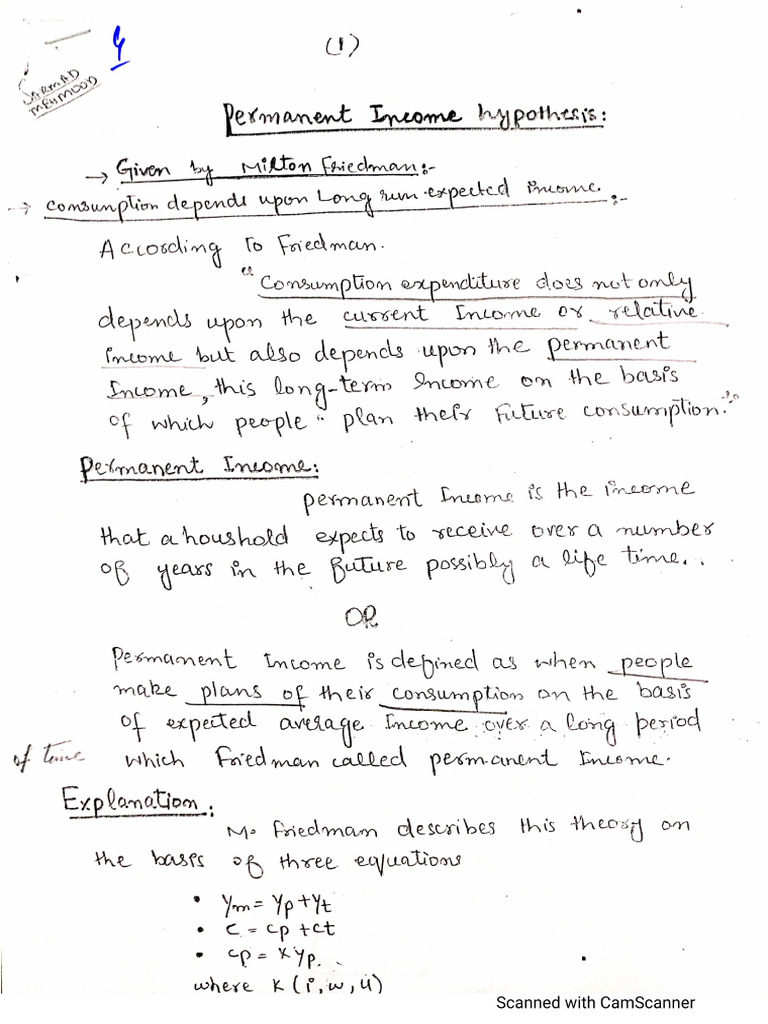 (1)
4
SARMAD
MEHMOOD
Permanent Income hypothesis:
→ Given by Milton Friedman:-
→ consumption depends upon Long run expected income. :-
According to Friedman.
"Consumption expenditure does not only
depends upon the current Income or relative
income but also depends upon the permanent
Income, this long-term Income on the basis
of which people plan their Future consumption."
Permanent Income:
permanent Income is the income
that a houshold expects to receive over a number
of years in the future possibly a life time..
OR
Permanent Income is defined as when people
make plans of their consumption on the basis
of expected average Income over a long period
of time which Friedman called permanent Income.
Explanation:
M. Friedman describes this theory on
the basis of three equations
• Ym = Yp + Yt
• C = Cp + Ct
• Cp = KYp.
where K (i, w, u)
Scanned with CamScanner